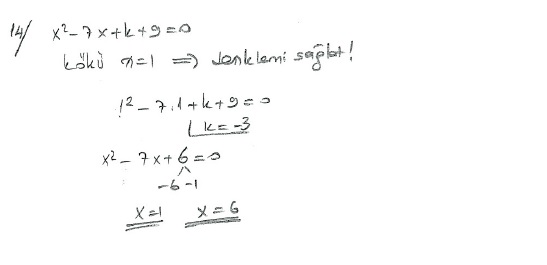 14/ x² - 7x + k + 9 = 0
kökü x=1 ⇒ denklemi sağlat!
1² - 7.1 + k + 9 = 0
k = -3
x² - 7x + 6 = 0
-6 -1
x=1 x=6